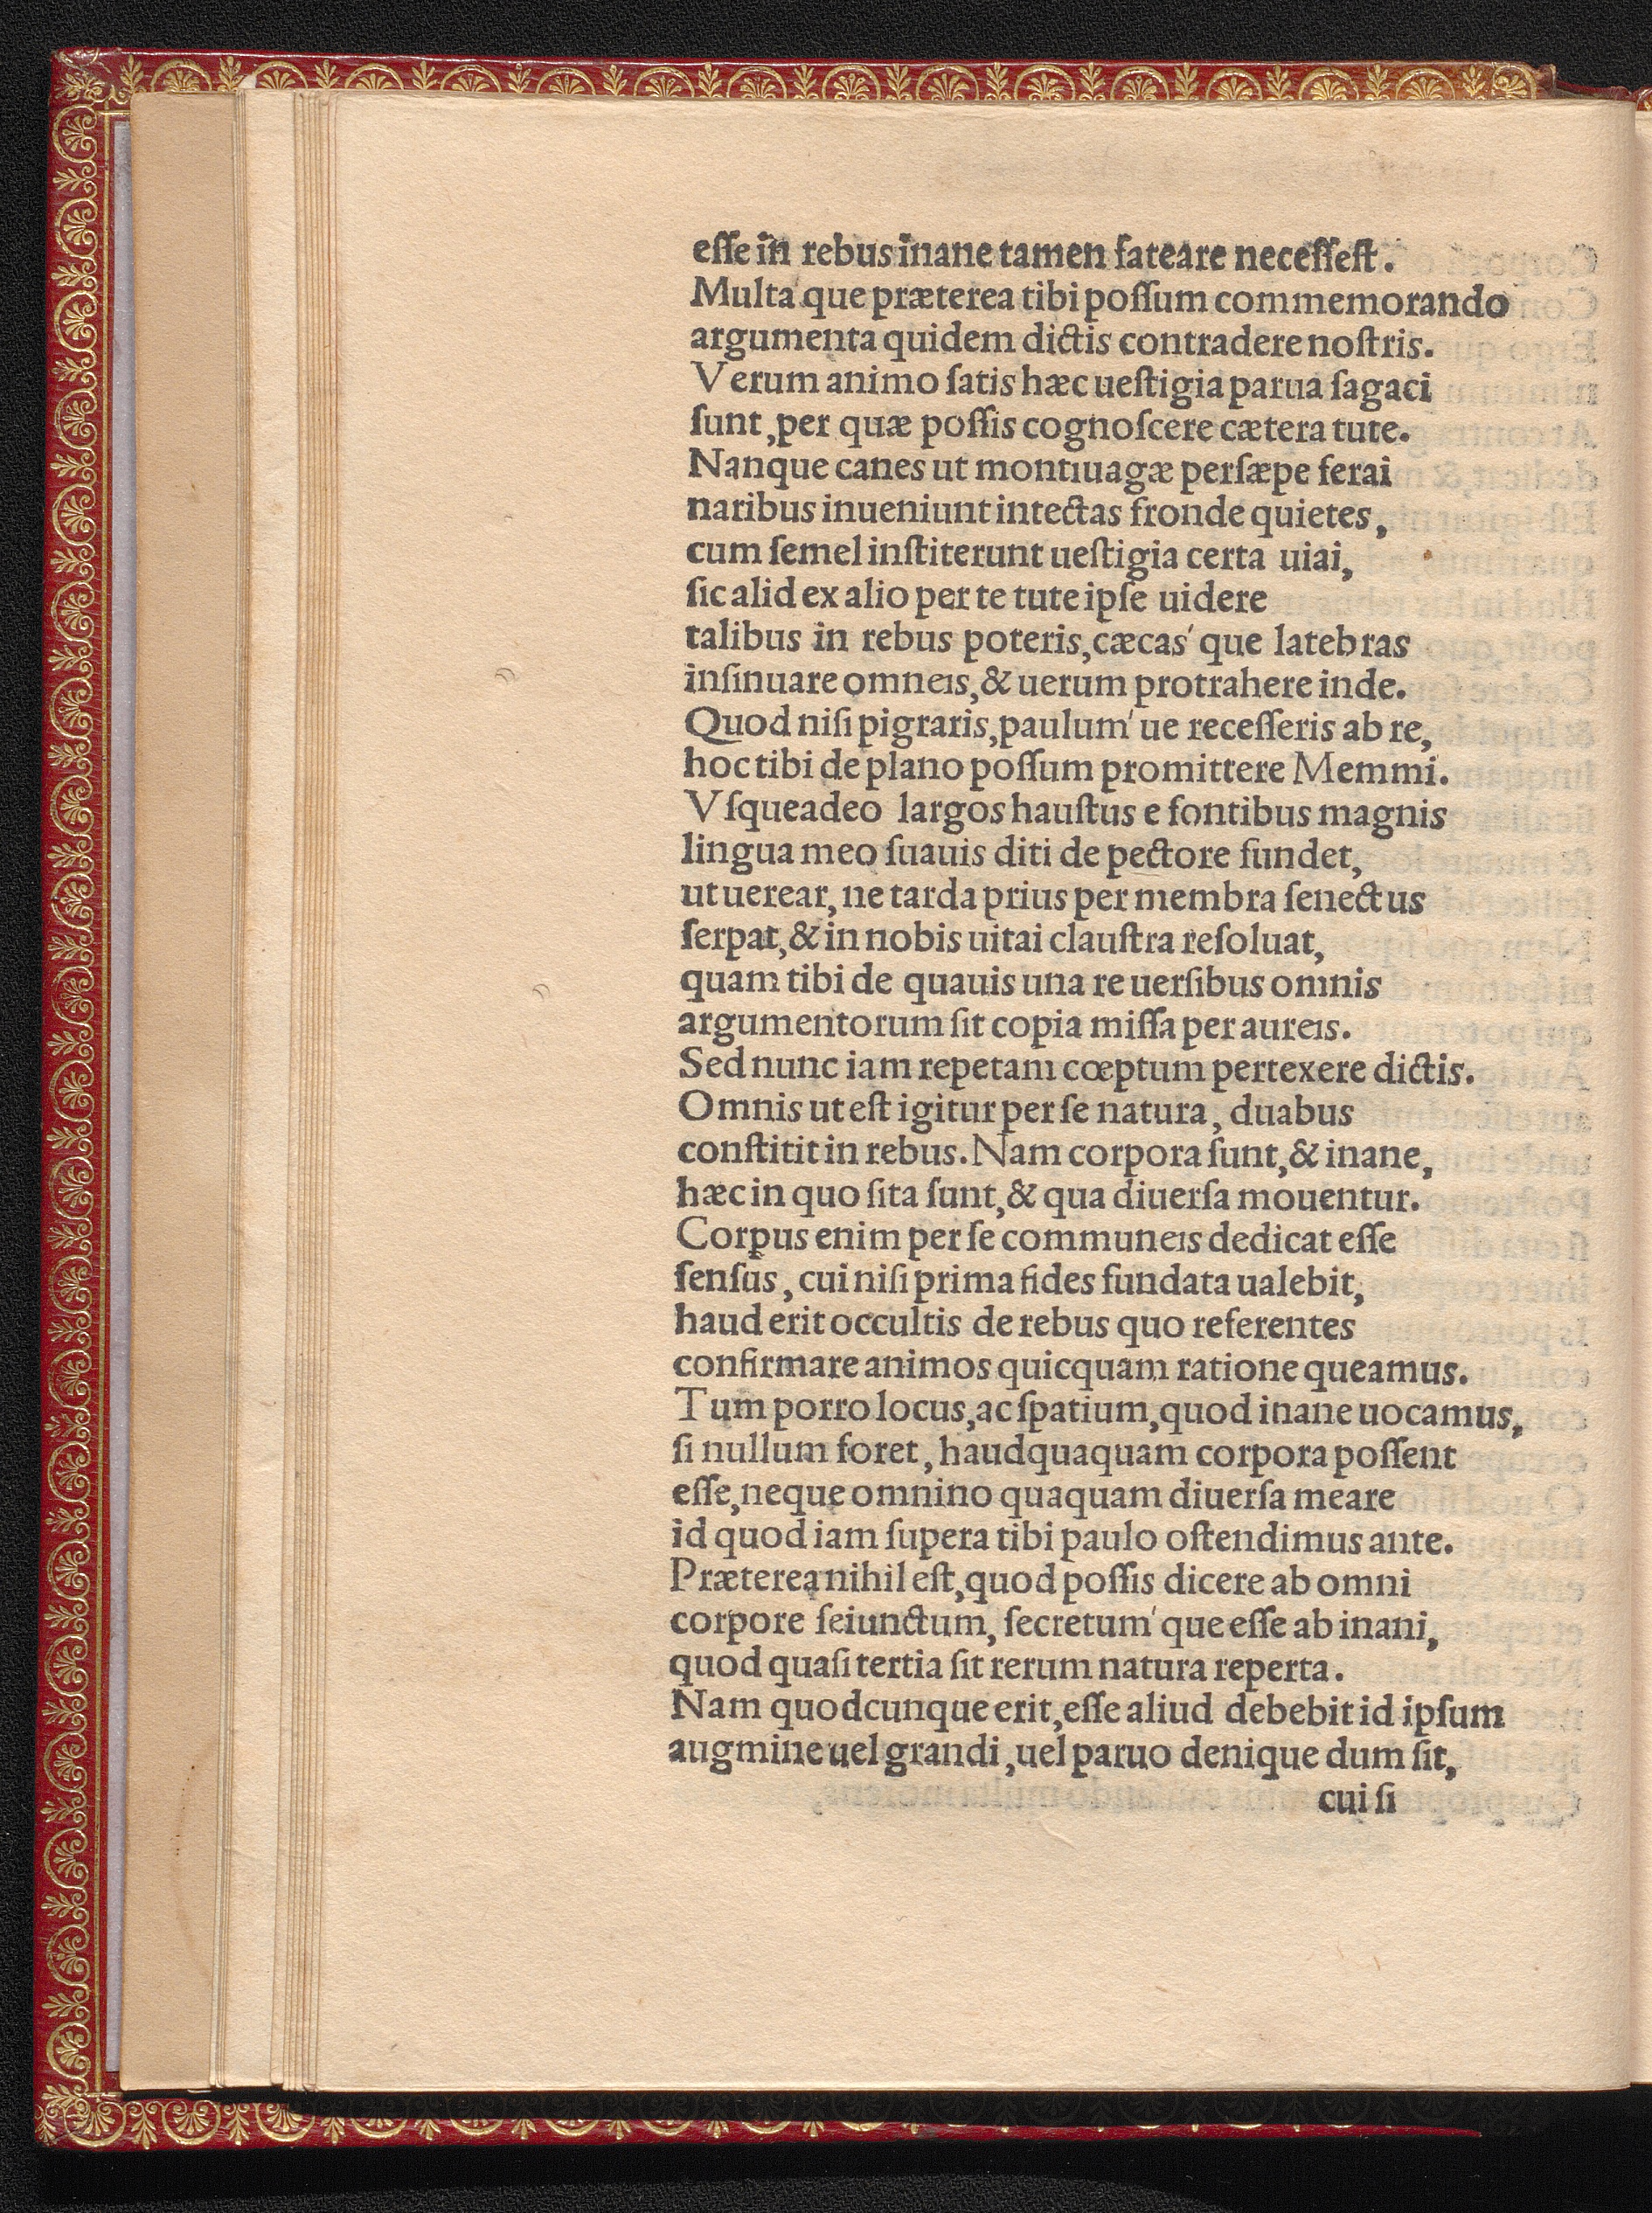 eſſe in rebus inane tamen fateare neceſſeſt.
Multa'que præterea tibi poſſum commemorando
argumenta quidem dictis contradere noſtris.
Verum animo ſatis hæc ueſtigia parua ſagaci
ſunt, per quæ poſſis cognoſcere cætera tute.
Nanque canes ut montiuagæ perſæpe ferai
naribus inueniunt intectas fronde quietes,
cum ſemel inſtiterunt ueſtigia certa uiai,
ſic alid ex alio per te tute ipſe uidere
talibus in rebus poteris, cæcas'que latebras
inſinuare omneis, & uerum protrahere inde.
Quod niſi pigraris, paulum'ue receſſeris ab re,
hoc tibi de plano poſſum promittere Memmi.
Vſqueadeo largos hauſtus e fontibus magnis
lingua meo ſuauis diti de pectore fundet,
ut uerear, ne tarda prius per membra ſenectus
ſerpat, & in nobis uitai clauſtra reſoluat,
quam tibi de quauis una re uerſibus omnis
argumentorum ſit copia miſſa per aureis.
Sed nunc iam repetam cœptum pertexere dictis.
Omnis ut eſt igitur per ſe natura, duabus
conſtitit in rebus. Nam corpora ſunt, & inane,
hæc in quo ſita ſunt, & qua diuerſa mouentur.
Corpus enim per ſe communeis dedicat eſſe
ſenſus, cui niſi prima fides fundata ualebit,
haud erit occultis de rebus quo referentes
confirmare animos quicquam ratione queamus.
Tum porro locus, ac ſpatium, quod inane uocamus,
ſi nullum foret, haudquaquam corpora poſſent
eſſe, neque omnino quaquam diuerſa meare
id quod iam ſupera tibi paulo oſtendimus ante.
Præterea nihil eſt, quod poſſis dicere ab omni
corpore ſeiunctum, ſecretum'que eſſe ab inani,
quod quaſi tertia ſit rerum natura reperta.
Nam quodcunque erit, eſſe aliud debebit id ipſum
augmine uel grandi, uel paruo denique dum ſit,
cui ſi